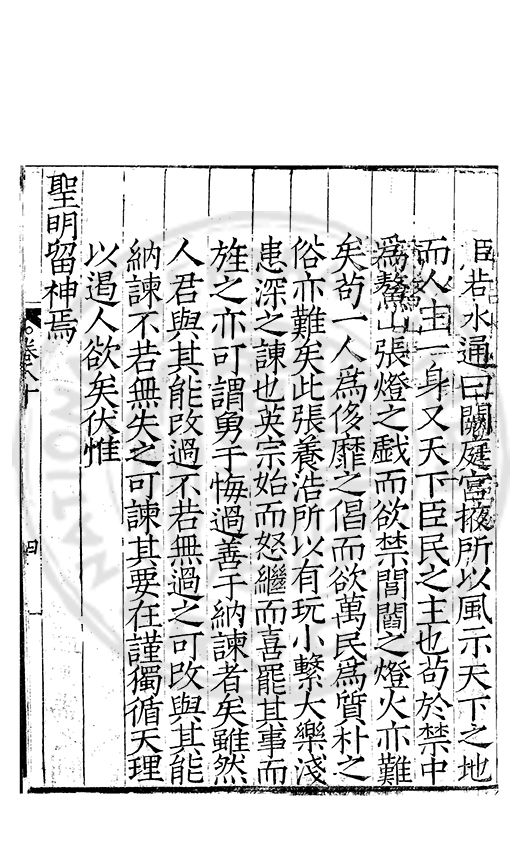 臣若水通曰闕庭宮掖所以風示天下之地
而人主一身又天下臣民之主也苟於禁中
為鰲山張燈之戲而欲禁閭閻之燈火亦難
矣苟一人為侈靡之倡而欲萬民為質朴之
俗亦難矣此張養浩所以有玩小繫大樂淺
患深之諫也英宗始而怒繼而喜罷其事而
旌之亦可謂勇于悔過善于納諫者矣雖然
人君與其能改過不若無過之可改與其能
納諫不若無失之可諫其要在謹獨循天理
以遏人欲矣伏惟
聖明留神焉
卷八十
四